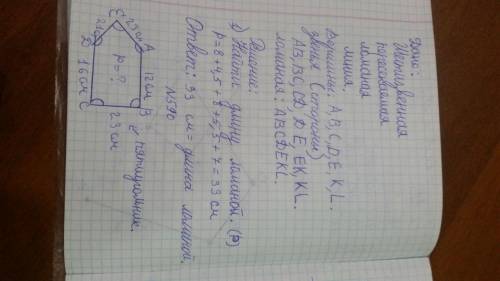 Дано:
Шестизвенная
ломаная
линия.
Вершины: A, B, C, D, E, K, L.
звенья (стороны)
AB, BC, CD, DE, EK, KL.
ломаная: ABCDEKL.
Решение:
1) Найти длину ломаной. (P)
P=8+4,5+8+5,5+7=33 см
Ответ: 33 см = длина ломаной.
N590
E
23 см
A
21 см
12 см
P=?
D
B
16 см
C
23 см
пятиугольник.